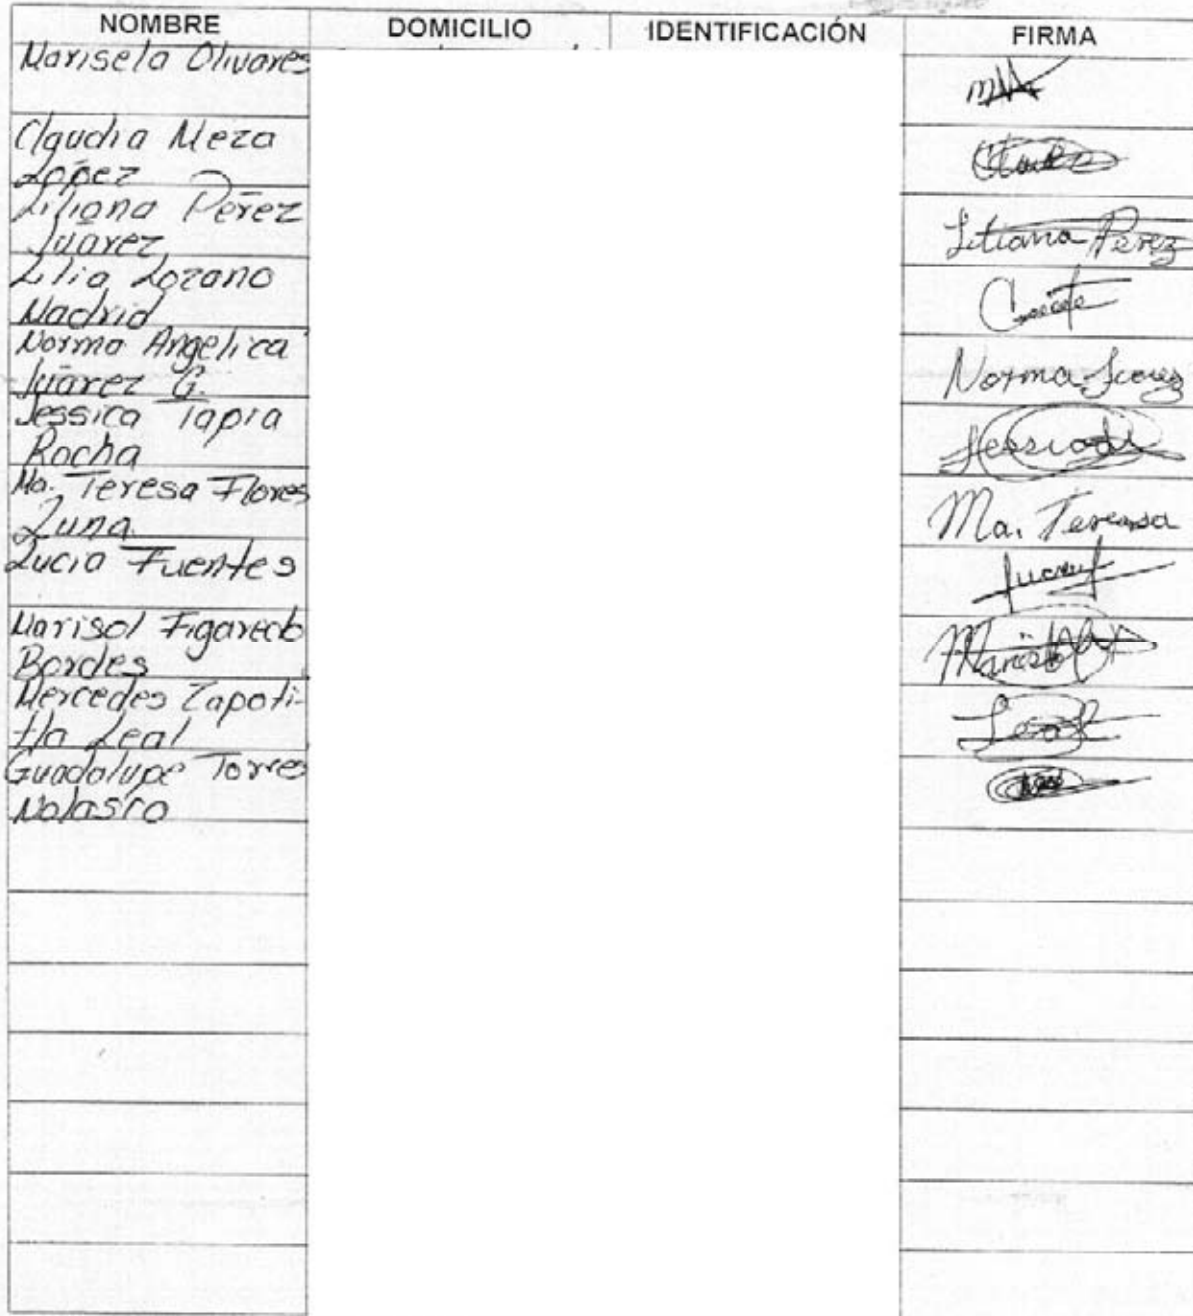 NOMBRE DOMICILIO IDENTIFICACIÓN FIRMA
Marisela Olivares
Claudia Meza
López
Liliana Pérez
Juárez
Liliana Perez
Lilia Lozano
Madrid
Norma Angelica
Juárez G.
Norma Juarez
Jessica Tapia
Rocha
Ma. Teresa Flores
Luna
Ma. Teresa
Lucia Fuentes
Marisol Figaredo
Bordes
Marisol
Mercedes Zapoti-
tla Leal
Leal
Guadalupe Torres
Nolasco